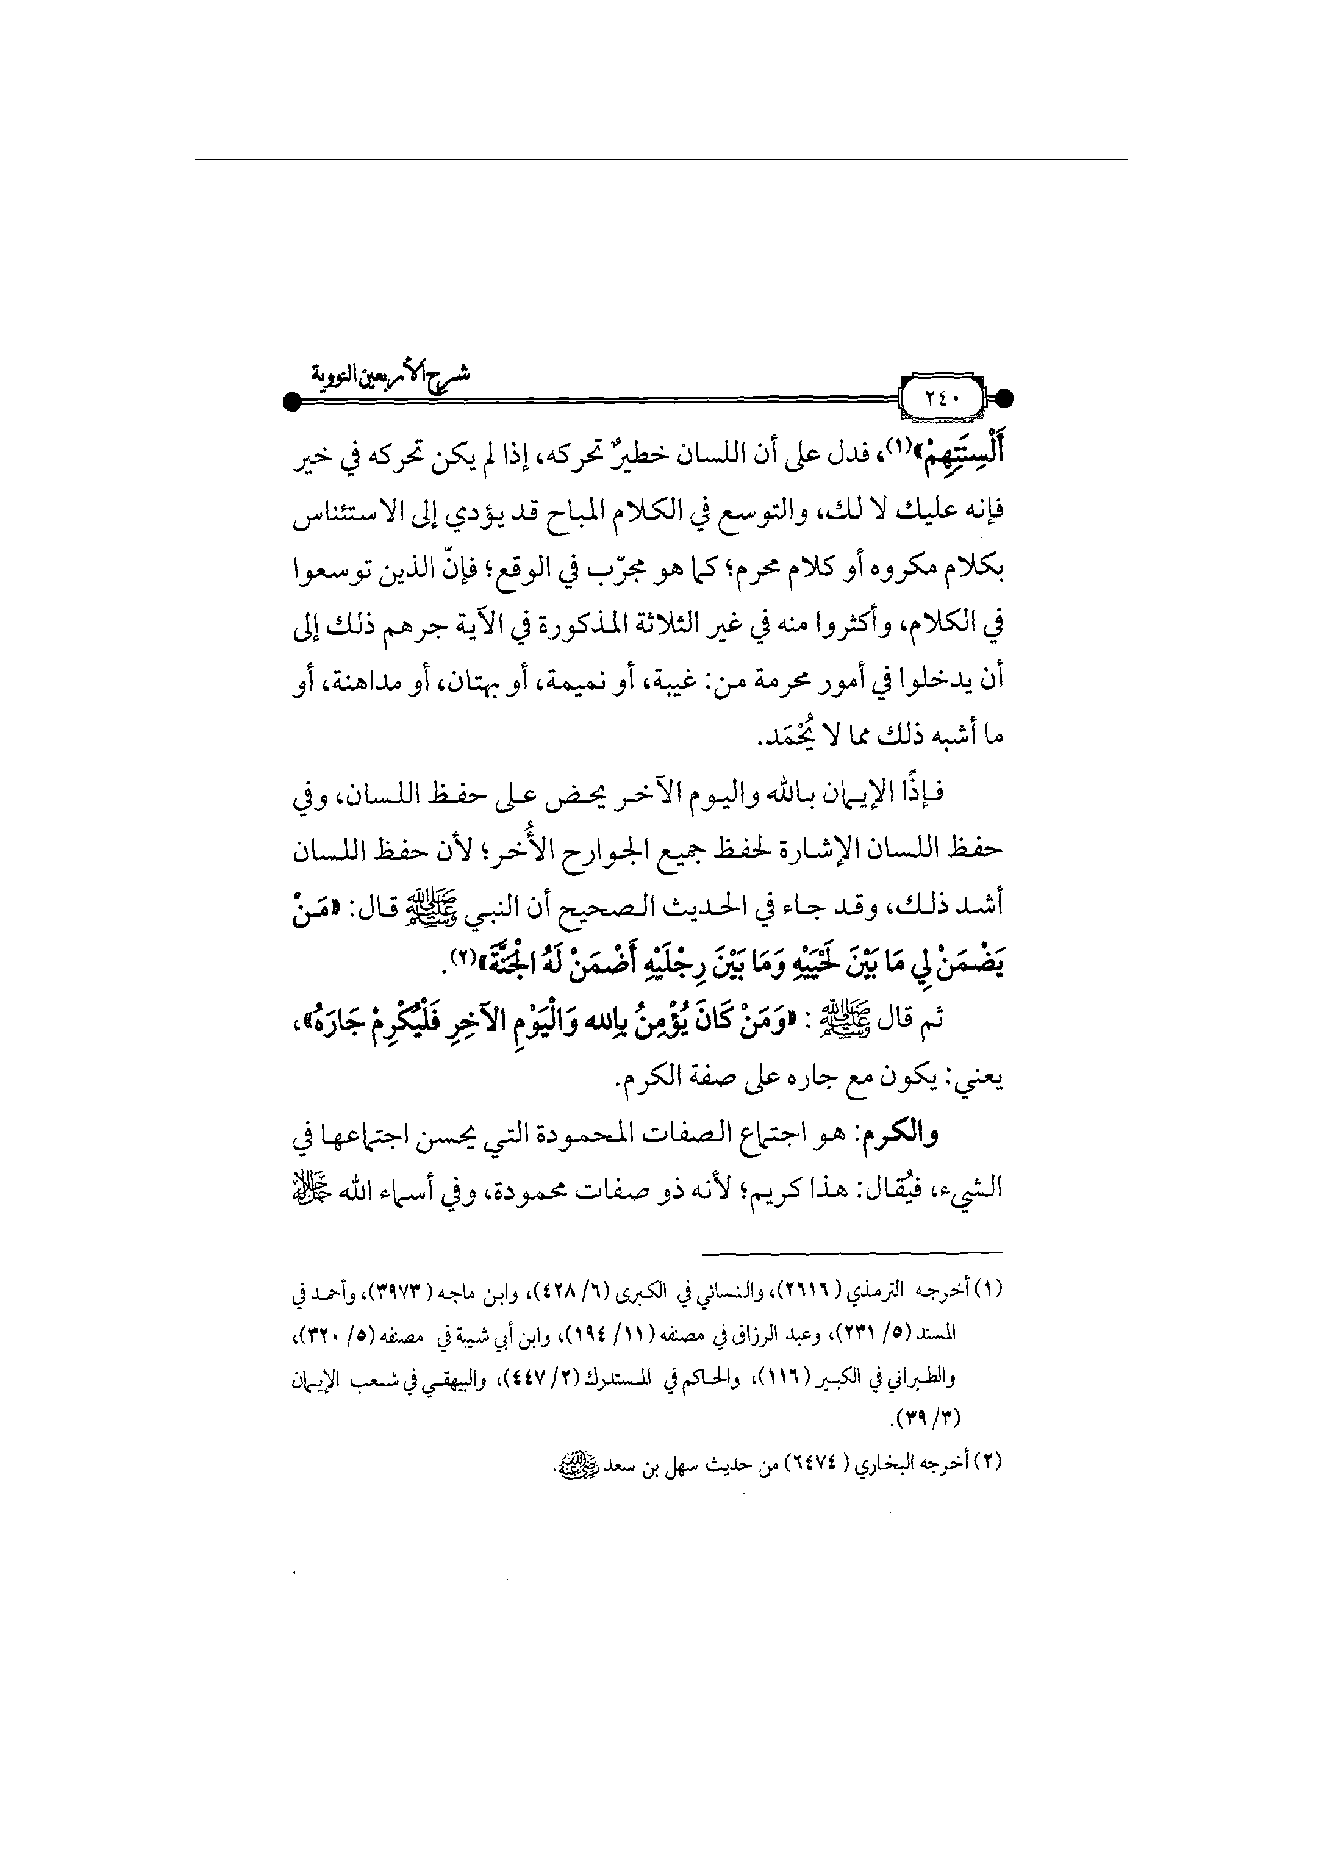 شرح الأربعين النووية
٢٤٠
أَلْسِنَتِهِمْ»(١)، فدل على أن اللسان خطيرٌ تحركه، إذا لم يكن تحركه في خير
فإنه عليك لا لك، والتوسع في الكلام المباح قد يؤدي إلى الاستئناس
بكلام مكروه أو كلام محرم؛ كما هو مجرّب في الوقع؛ فإنّ الذين توسعوا
في الكلام، وأكثروا منه في غير الثلاثة المذكورة في الآية جرهم ذلك إلى
أن يدخلوا في أمور محرمة من: غيبة، أو نميمة، أو بهتان، أو مداهنة، أو
ما أشبه ذلك مما لا يُحْمَد.
فإذًا الإيمان بالله واليوم الآخر يحض على حفظ اللسان، وفي
حفظ اللسان الإشارة لحفظ جميع الجوارح الأُخر؛ لأن حفظ اللسان
أشد ذلك، وقد جاء في الحديث الصحيح أن النبي ﷺ قال: «مَنْ
يَضْمَنْ لِي مَا بَيْنَ لَحْيَيْهِ وَمَا بَيْنَ رِجْلَيْهِ أَضْمَنْ لَهُ الْجَنَّةَ»(٢).
ثم قال ﷺ: «وَمَنْ كَانَ يُؤْمِنُ بِالله وَالْيَوْمِ الآخِرِ فَلْيُكْرِمْ جَارَهُ»،
يعني: يكون مع جاره على صفة الكرم.
والكرم: هو اجتماع الصفات المحمودة التي يحسن اجتماعها في
الشيء، فيُقال: هذا كريم؛ لأنه ذو صفات محمودة، وفي أسماء الله ﷻ
(١) أخرجه الترمذي (٢٦١٦)، والنسائي في الكبرى (٦/ ٤٢٨)، وابن ماجه (٣٩٧٣)، وأحمد في
المسند (٥/ ٢٣١)، وعبد الرزاق في مصنفه (١١/ ١٩٤)، وابن أبي شيبة في مصنفه (٥/ ٣٢٠)،
والطبراني في الكبير (١١٦)، والحاكم في المستدرك (٢/ ٤٤٧)، والبيهقي في شعب الإيمان
(٣/ ٣٩).
(٢) أخرجه البخاري (٦٤٧٤) من حديث سهل بن سعد رضي الله عنه.